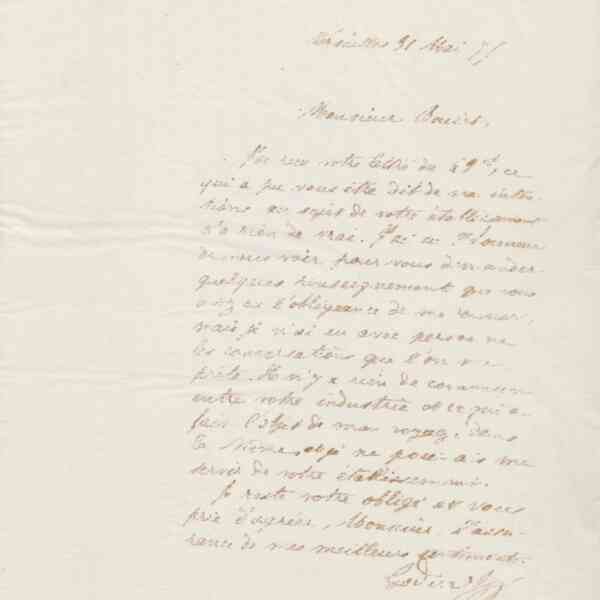 31 Mai 75
Monsieur
J'ai reçu votre lettre du 29 Ct, ce
qui a pu vous être dit de mes inten-
tions au sujet de votre établissement
n'a rien de vrai. J'ai eu l'honneur
de vous voir pour vous demander
quelques renseignements que vous
avez eu l'obligeance de me donner,
mais je n'ai eu avec personne
les conversations que l'on me
prête. Il n'y a rien de commun
entre votre industrie et ce qui a
fait l'objet de mon voyage, dans
la Nièvre, et je ne pourrais me
servir de votre établissement.
Je reste votre obligé et vous
prie d'agréer, Monsieur, l'assu-
rance de mes meilleurs sentiments.
Godin